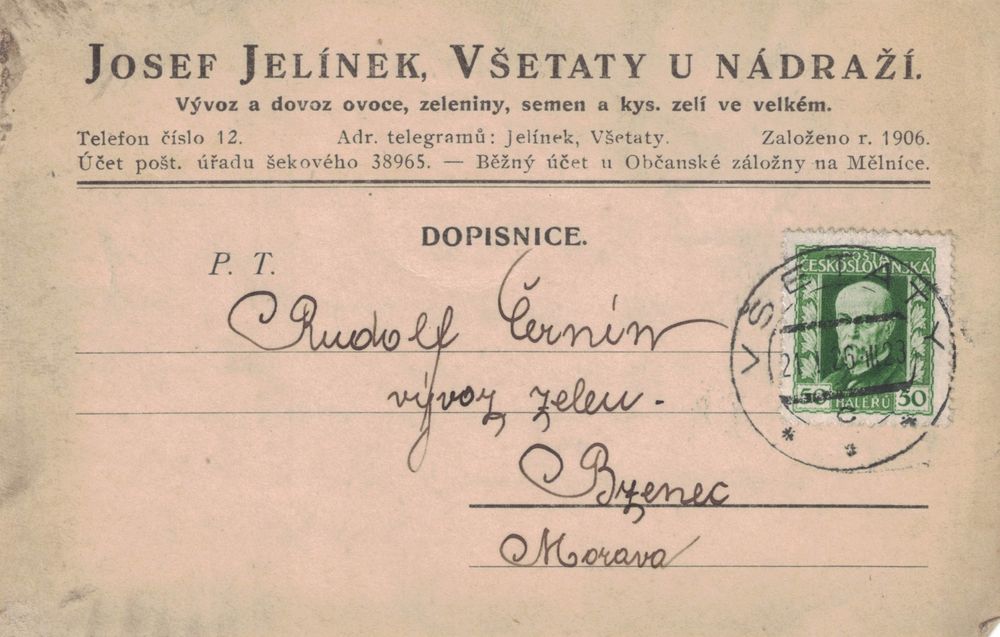 JOSEF JELÍNEK, VŠETATY U NÁDRAŽÍ.
Vývoz a dovoz ovoce, zeleniny, semen a kys. zelí ve velkém.
Telefon číslo 12. Adr. telegramů: Jelínek, Všetaty. Založeno r. 1906.
Účet pošt. úřadu šekového 38965. — Běžný účet u Občanské záložny na Mělníce.
DOPISNICE.
P. T.
Rudolf Černín
vývoz zelen.
Bzenec
Morava
POŠTA
ČESKOSLOVENSKÁ
50 HALÉŘŮ 50
VŠETATY
c